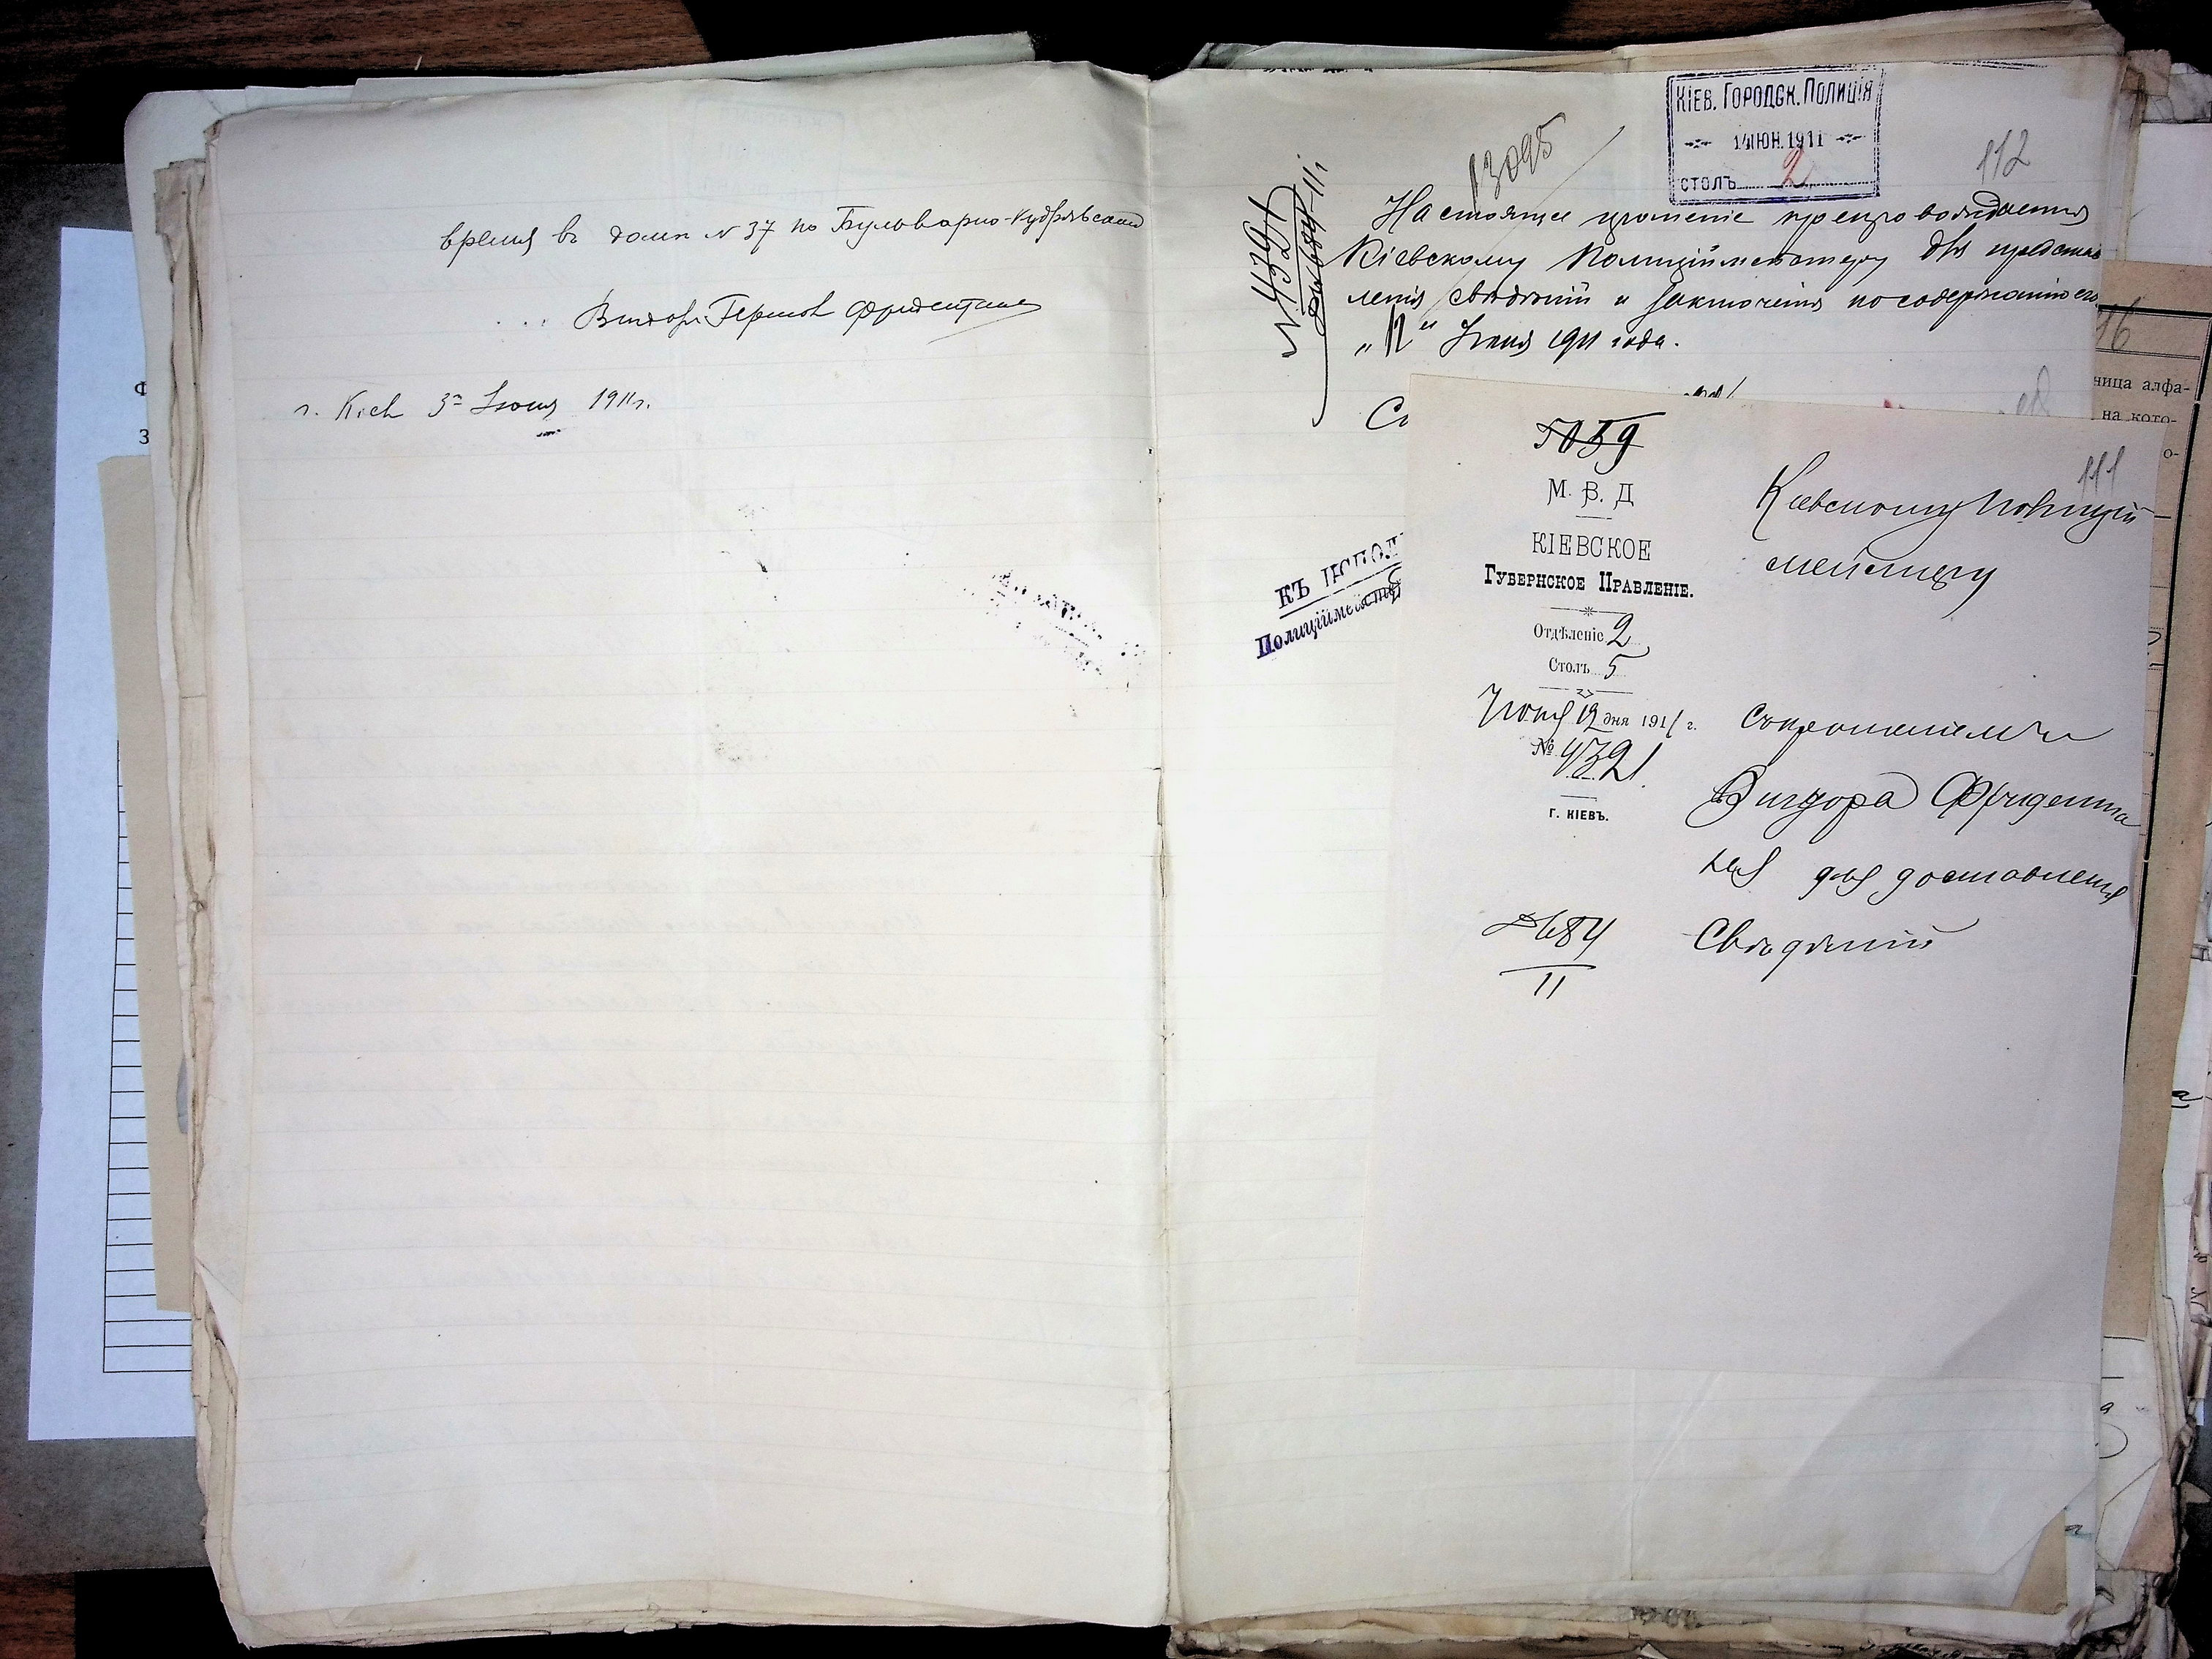 время въ доме № 37 по Бульварно-Кудрявской
г. Кіевъ 3го Іюня 1911г.
КІЕВ. ГОРОДСК. ПОЛИЦІЯ
14 ІЮН. 1911
СТОЛЪ 2
112
13095
№ 4321
684-11г
Настоящее прошеніе препровождается
Кіевскому Полиціймейстеру для представ
ленія свѣдѣній и заключенія по содержанію его
„12" Іюня 1911 года.
Се
КЪ ИСПОЛ
Полиціймейстер
5059
М. В. Д
КІЕВСКОЕ
ГУБЕРНСКОЕ ПРАВЛЕНІЕ.
Отдѣленіе 2
Столъ 5
Іюня 12 дня 1911 г.
№ 4321.
Г. КІЕВЪ.
684
11
111
Кіевскому Полицій-
мейстеру
Съ прошеніемъ
Вигдора Фридентa
для доставленія
Свѣдѣній
16
ница алфа-
на кото-
о-